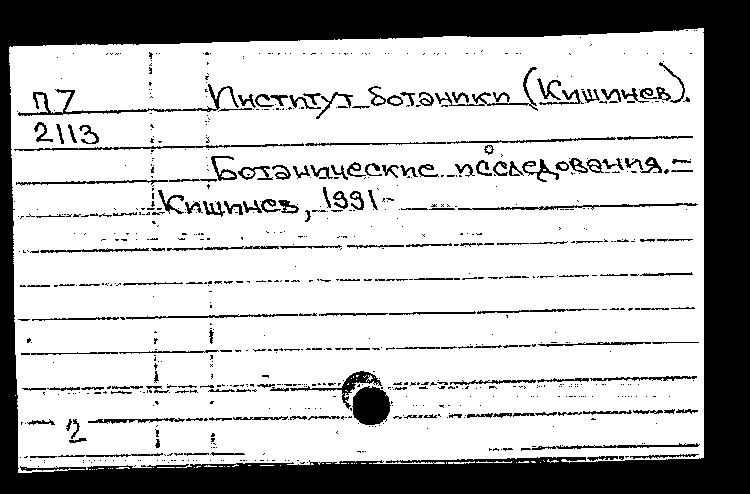 П7 Институт ботаники (Кишинев).
2113
Ботанические исследования. –
Кишинев, 1991-
2